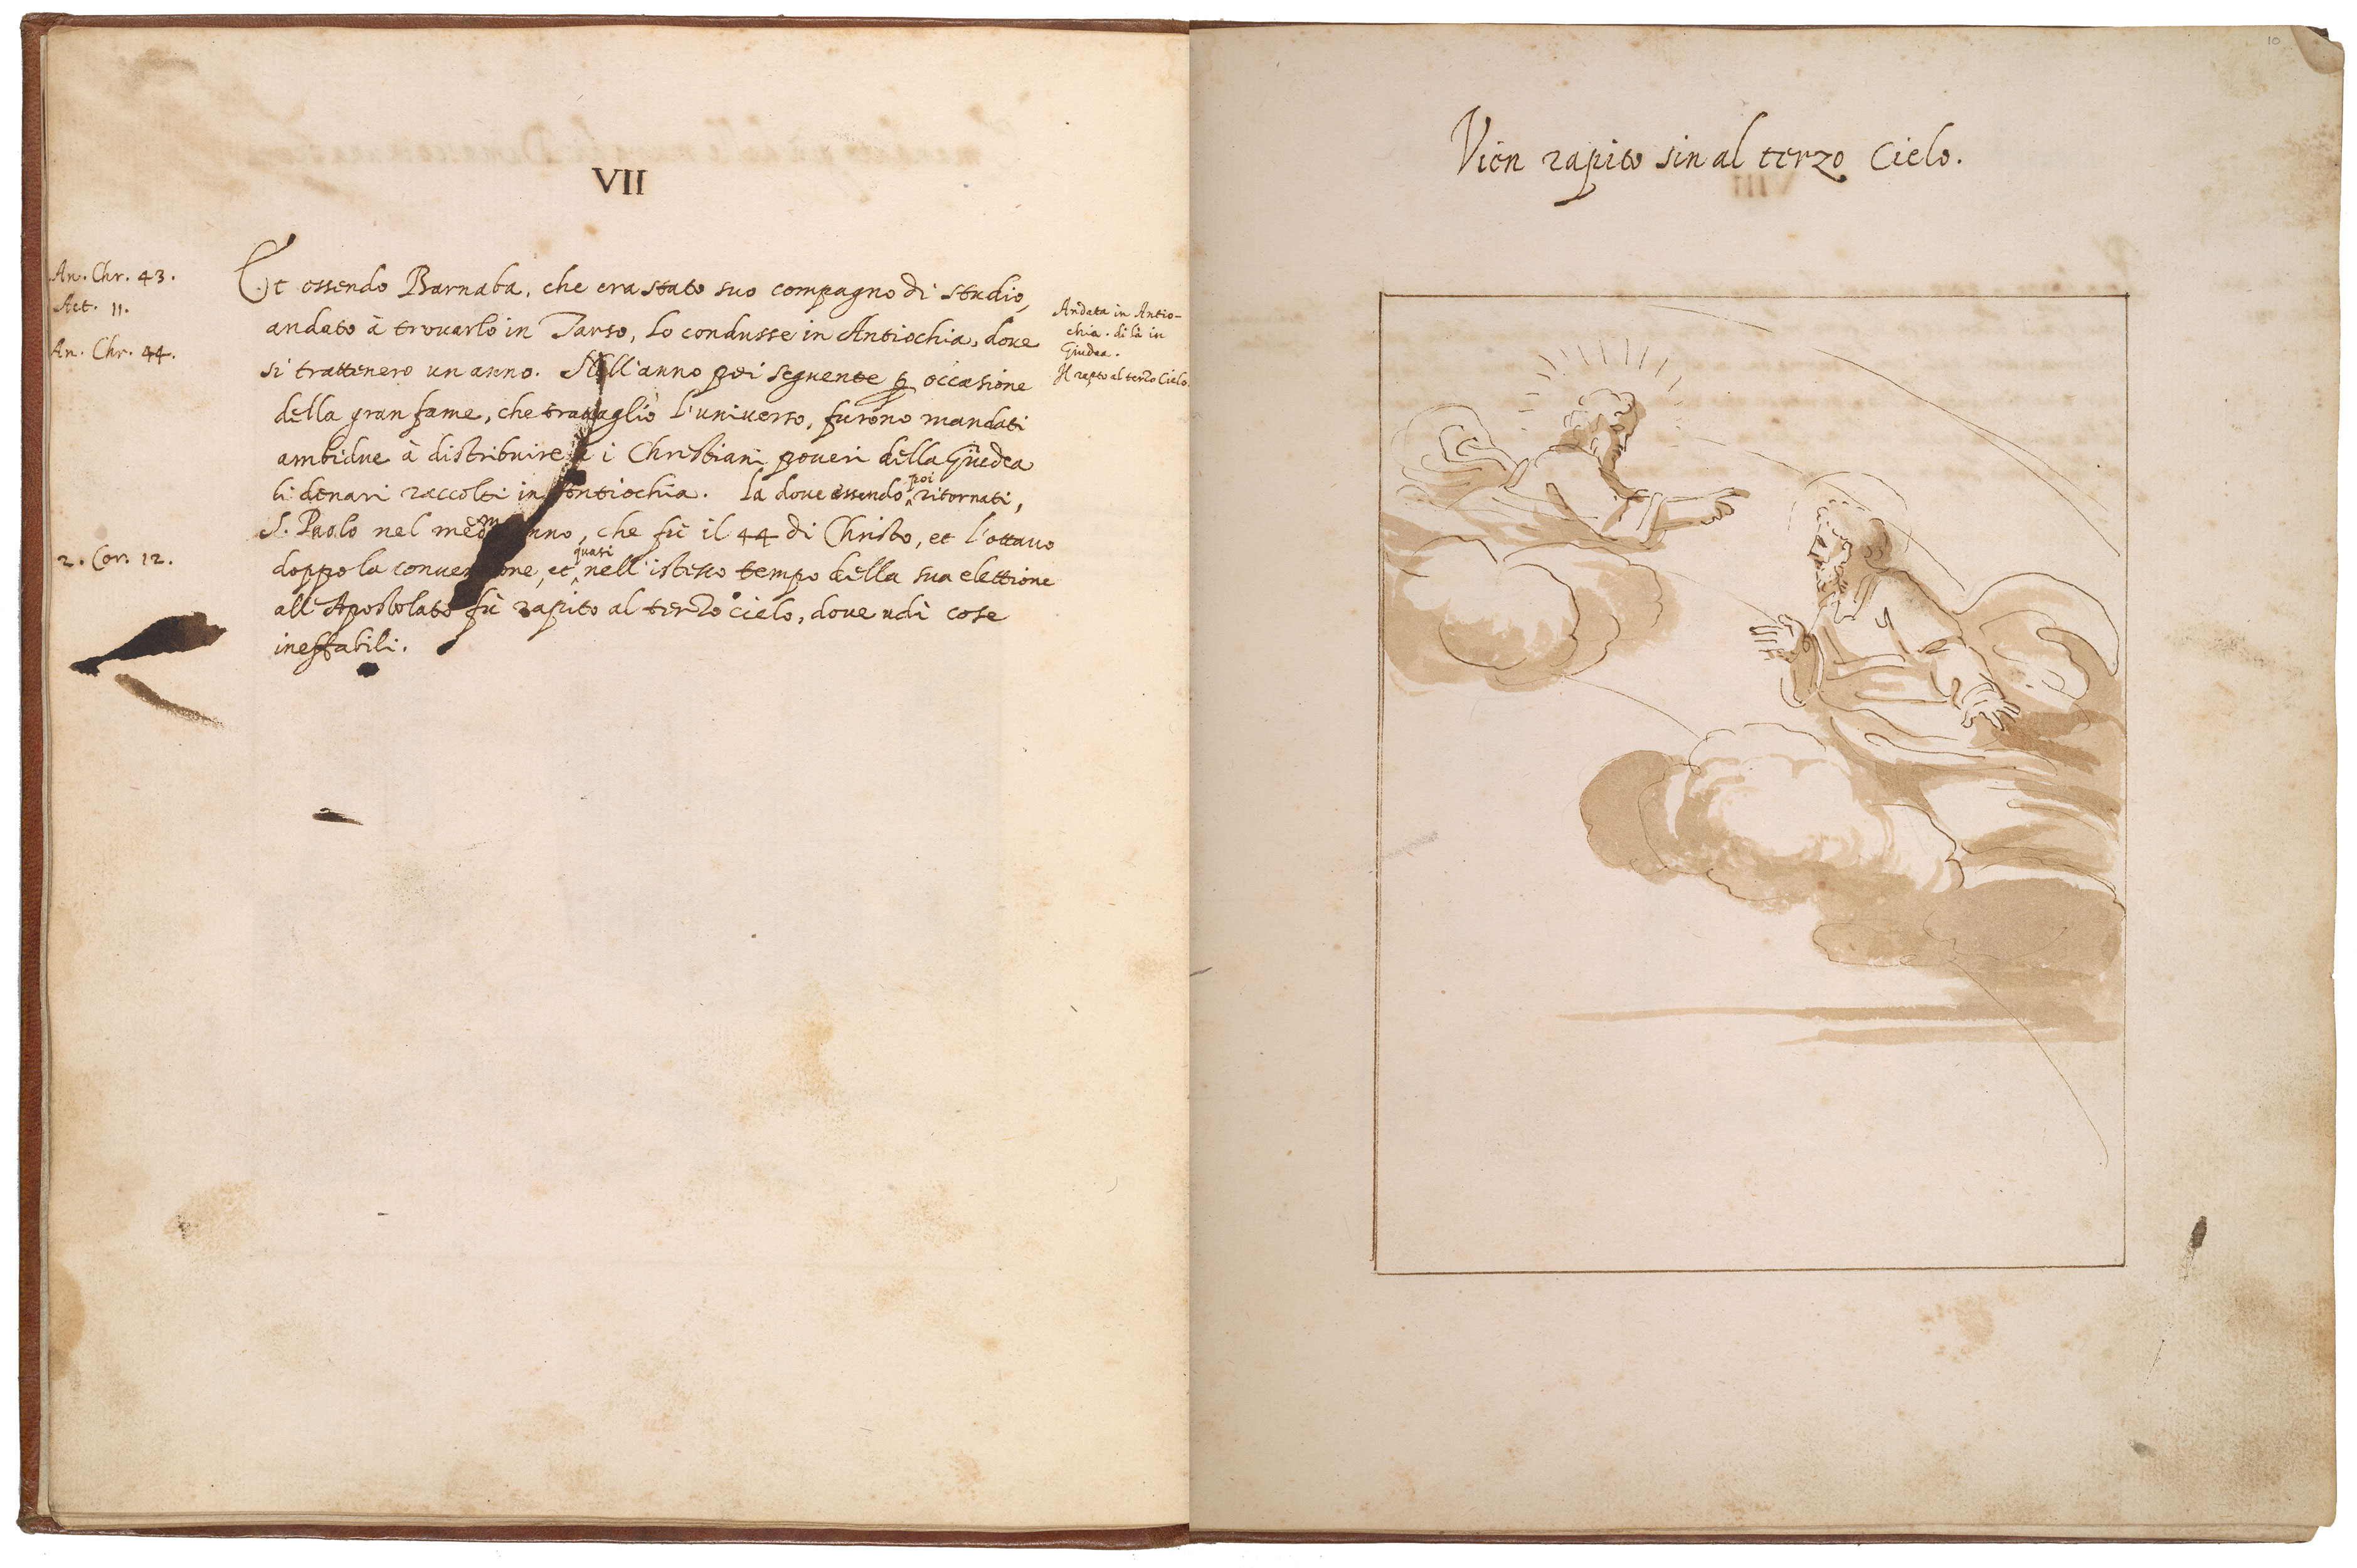 VII
An. Chr. 43.
Act. 11.
An. Chr. 44.
2. Cor. 12.
Et essendo Barnaba, che era stato suo compagno di studio,
andato à trovarlo in Tarso, lo condusse in Antiochia, dove
si trattenero un anno. Nell'anno poi seguente p occasione
della gran fame, che travagliò l'universo, furono mandati
ambidue à distribuire à i Christiani poveri della Giudea
li denari raccolti in Antiochia. Là dove essendo poi ritornati,
S. Paolo nel anno, che fù il 44 di Christo, et l'ottavo
doppo la conversione, et quasi nell'istesso tempo della sua elettione
all'Apostolato fù rapito al terzo cielo, dove udì cose
ineffabili.
Andata in Antio-
chia. di là in
Giudea.
Il rapto al terzo Cielo.
10
Vien rapito sin al terzo Cielo.